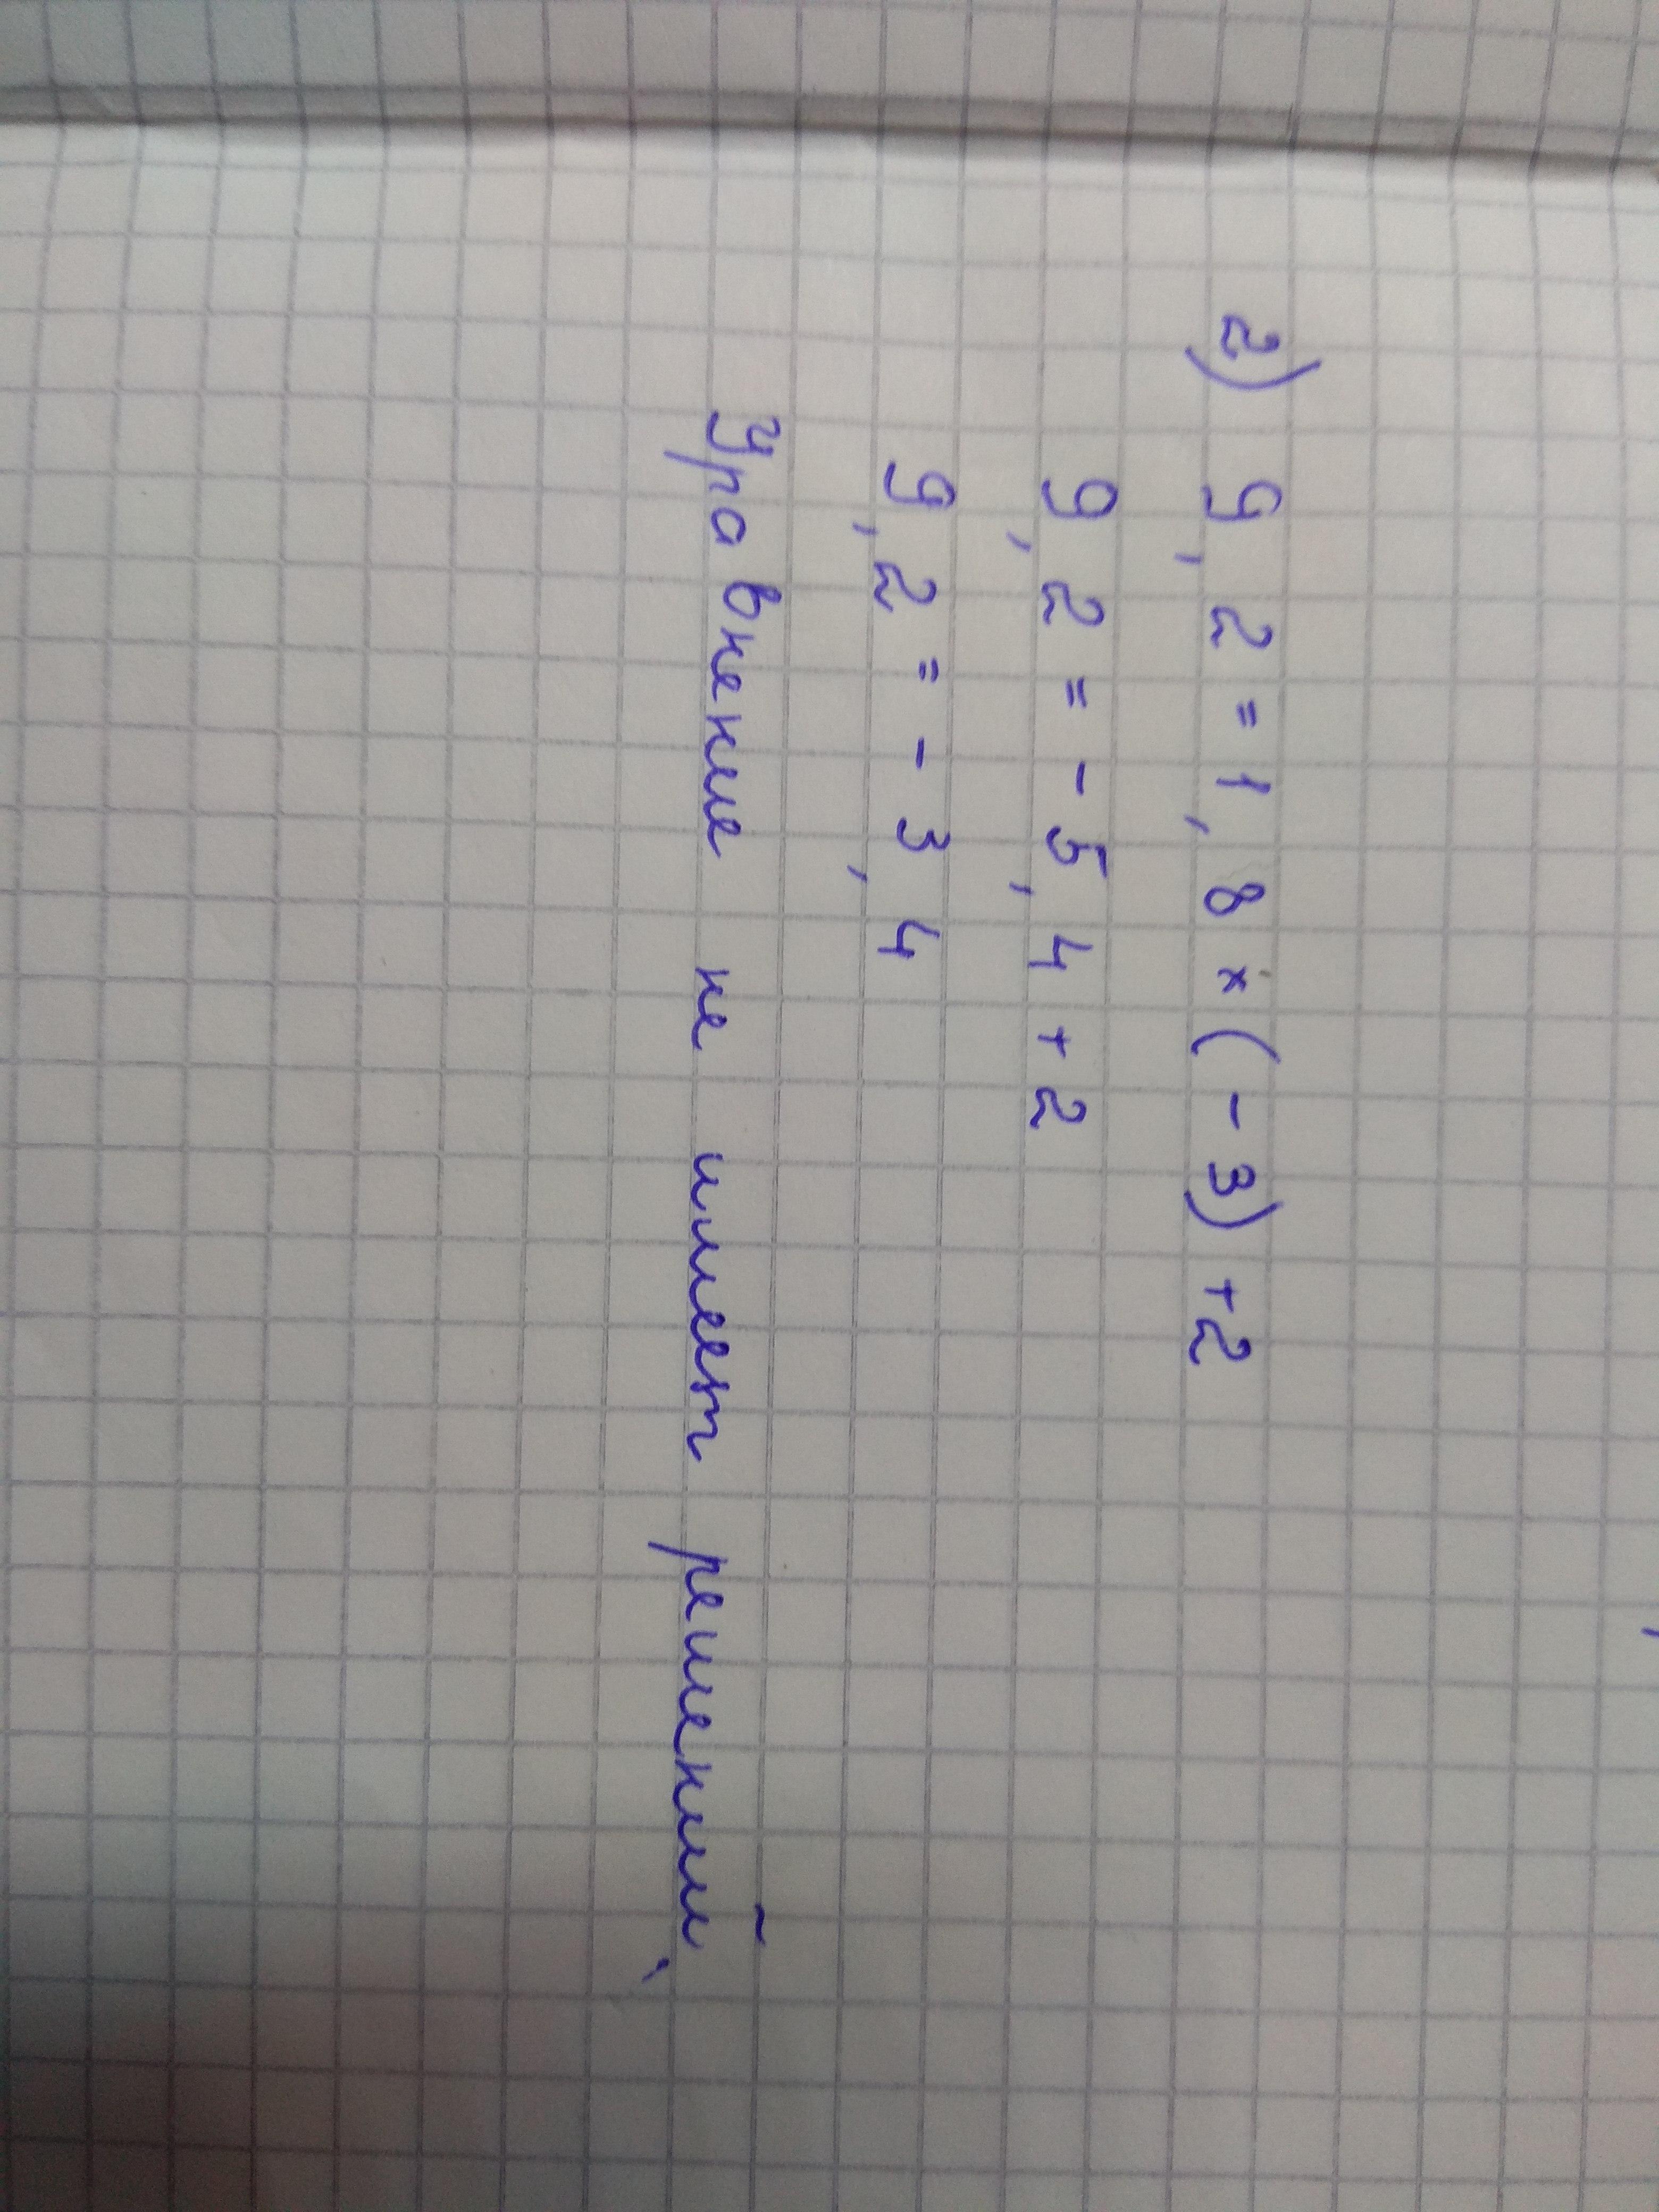 2) 9,2 = 1,8 × (-3) +2
9,2 = - 5,4 + 2
9,2 = - 3,4
Уравнение не имеет решений,